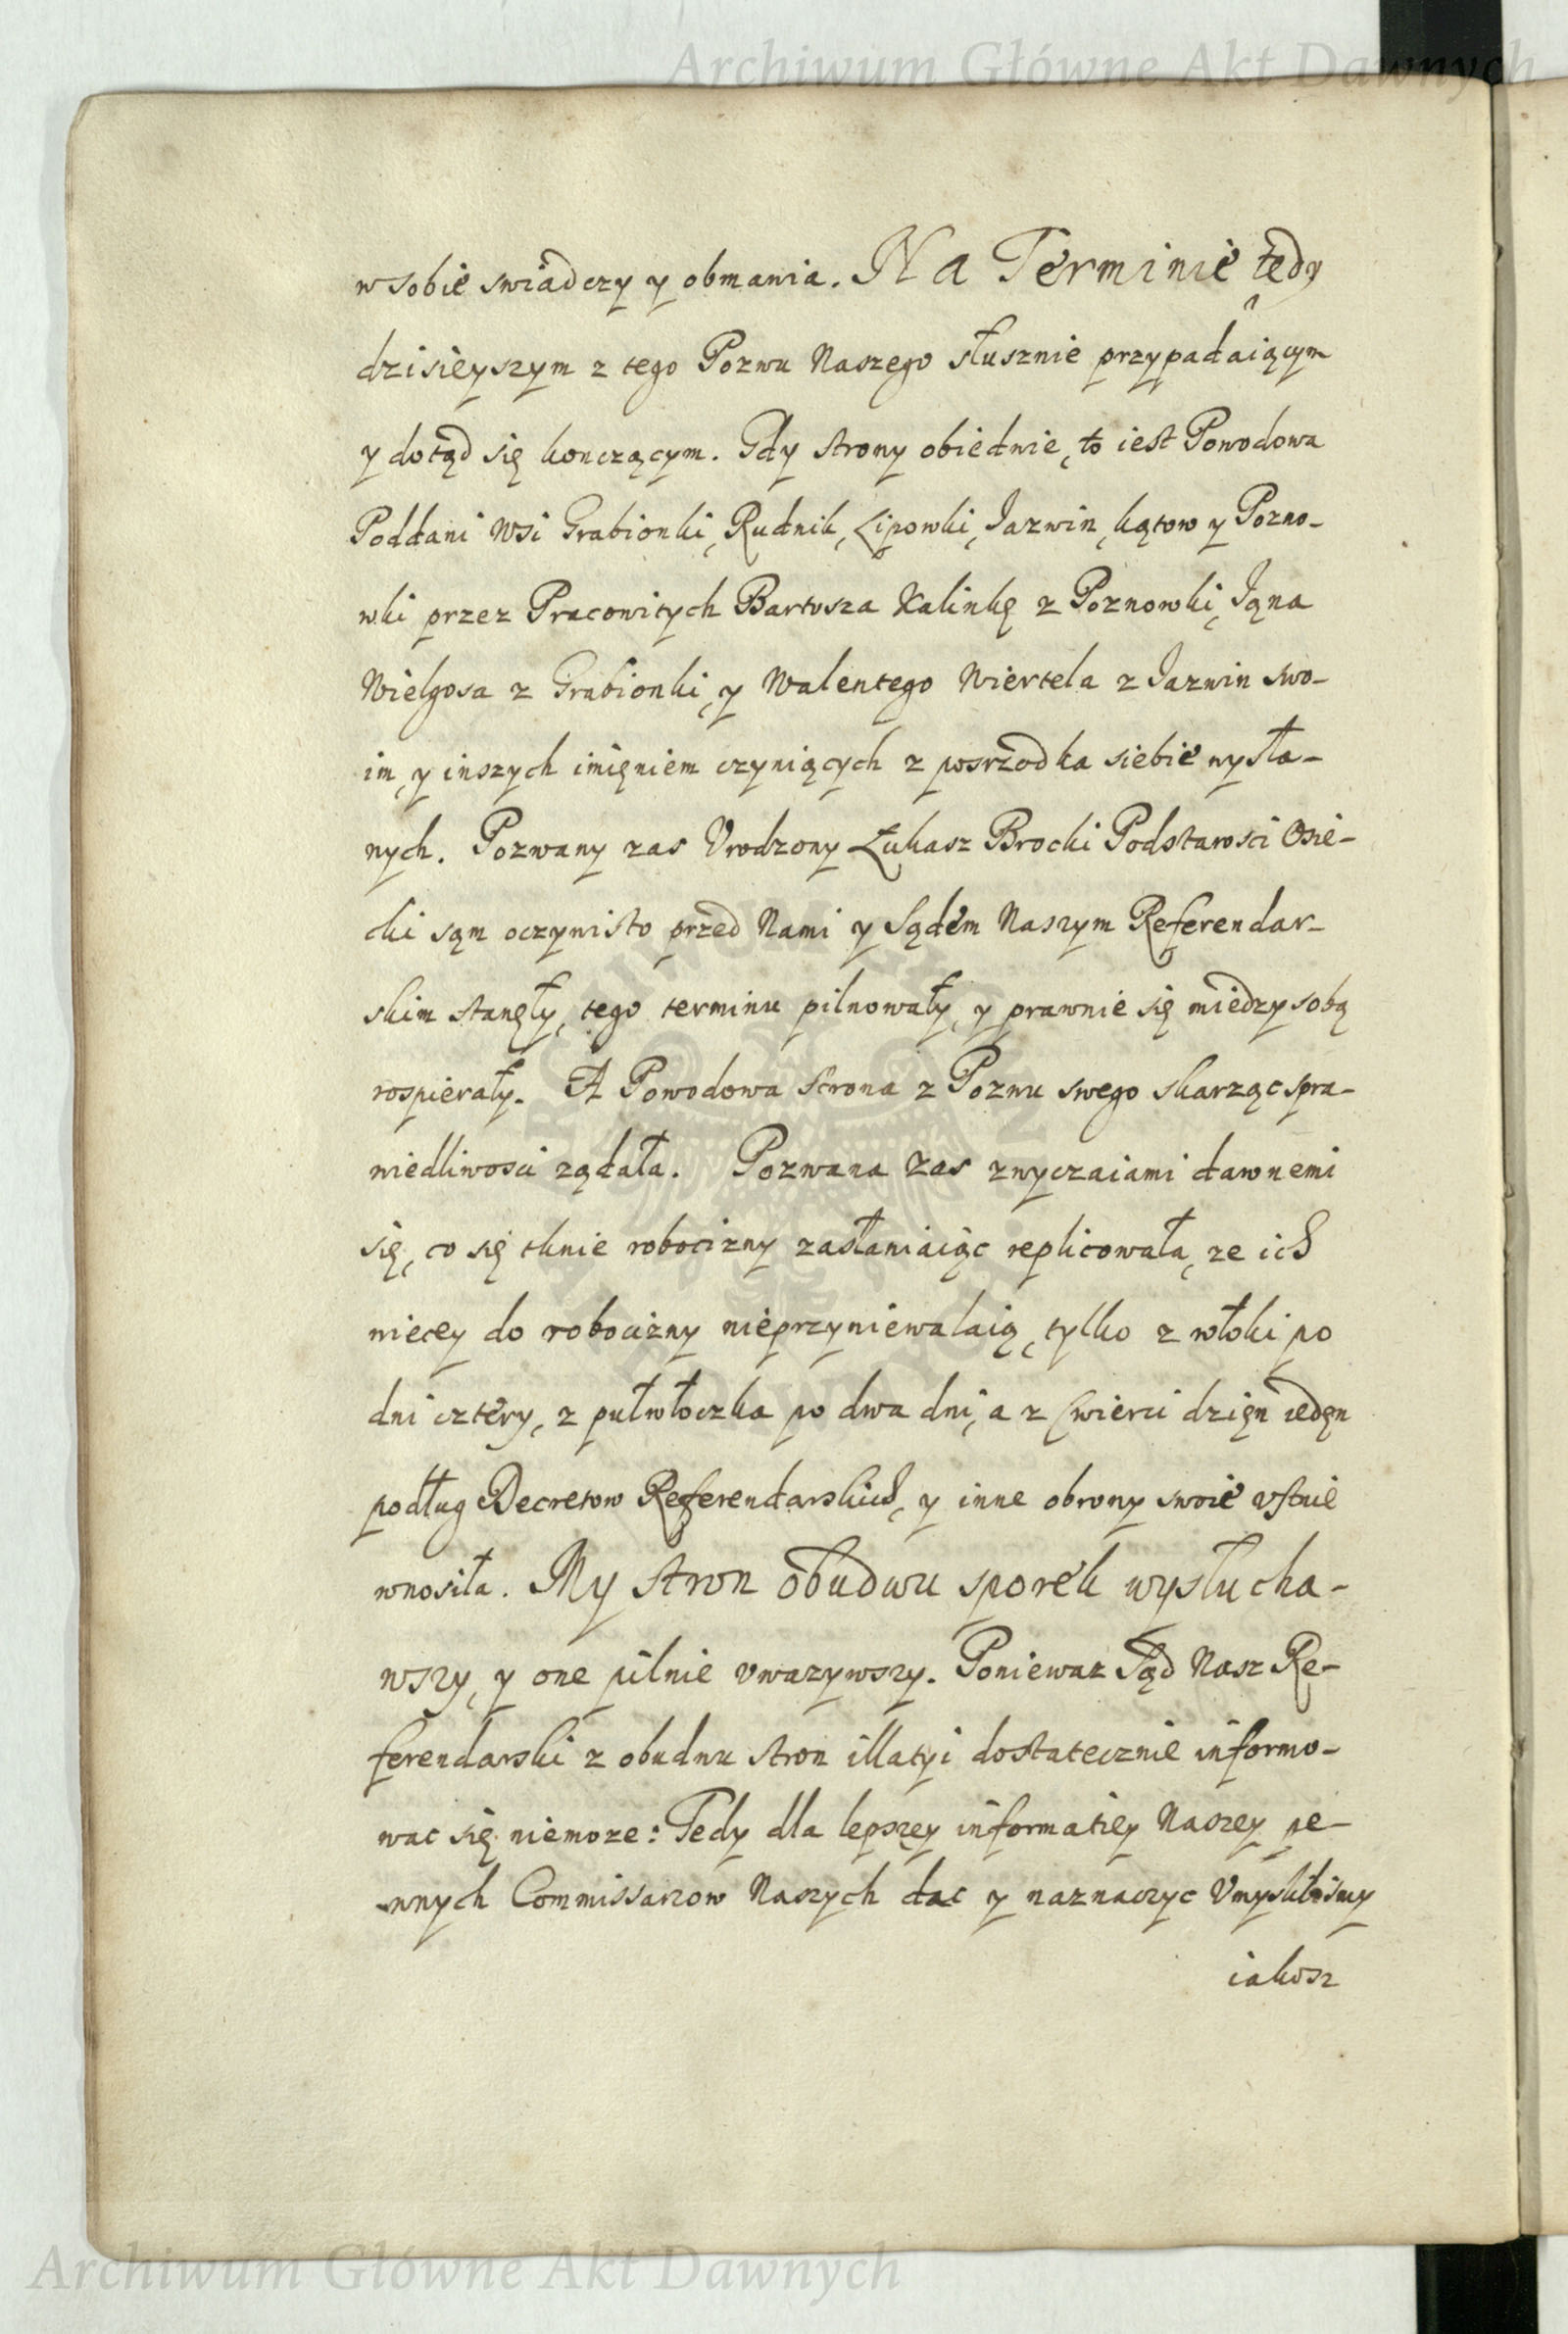 Archiwum Główne Akt Dawnych
w sobie swiadczy y obmawia. Na Terminie tedy
dzisieyszym z tego Pozwu Naszego słusznie przypadaiącym
y dotąd się konczącym. Gdy strony obiedwie, to iest Powodowa
Poddani Wsi Grabionki, Rudnik, Lipowki, Jazwin, kątow y Pozno-
wki przez Pracowitych Bartosza Kalinkę z Poznowki, Jana
Wielgosa z Grabionki, y Walentego Wiertela z Jazwin swo-
im, y inszych imięniem czyniących z posrzodka siebie wysła-
nych. Pozwany zas Vrodzony Łukasz Brocki Podstarosci Osie-
cki sąm oczywisto przed Nami y Sądem Naszym Referendar-
skim stanęły, tego terminu pilnowały, y prawnie się miedzy sobą
rospierały. A Powodowa Strona z Pozwu swego skarząc spra-
wiedliwosci ządała. Pozwana zas zwyczaiami dawnemi
się, co się tknie robocizny zasłaniaiąc replicowała, ze ich
wiecey do robocizny nieprzyniewalaią, tylko z włoki po
dni cztery, z pułwłoczka po dwa dni, a z cwierci dzięn iedęn
podług Decretow Referendarskich, y inne obrony swoie vstnie
wnosiła. My stron obudwu sporek wysłucha-
wszy, y one pilnie vwazywszy. Poniewaz Sąd Nasz Re-
ferendarski z obudwu stron illatyi dostatecznie informo-
wac się niemoze: Tedy dla lepszey informatiey Naszey pe-
wnych Commissarzow Naszych dac y naznaczyc Vmyslilismy
iakosz
Archiwum Główne Akt Dawnych